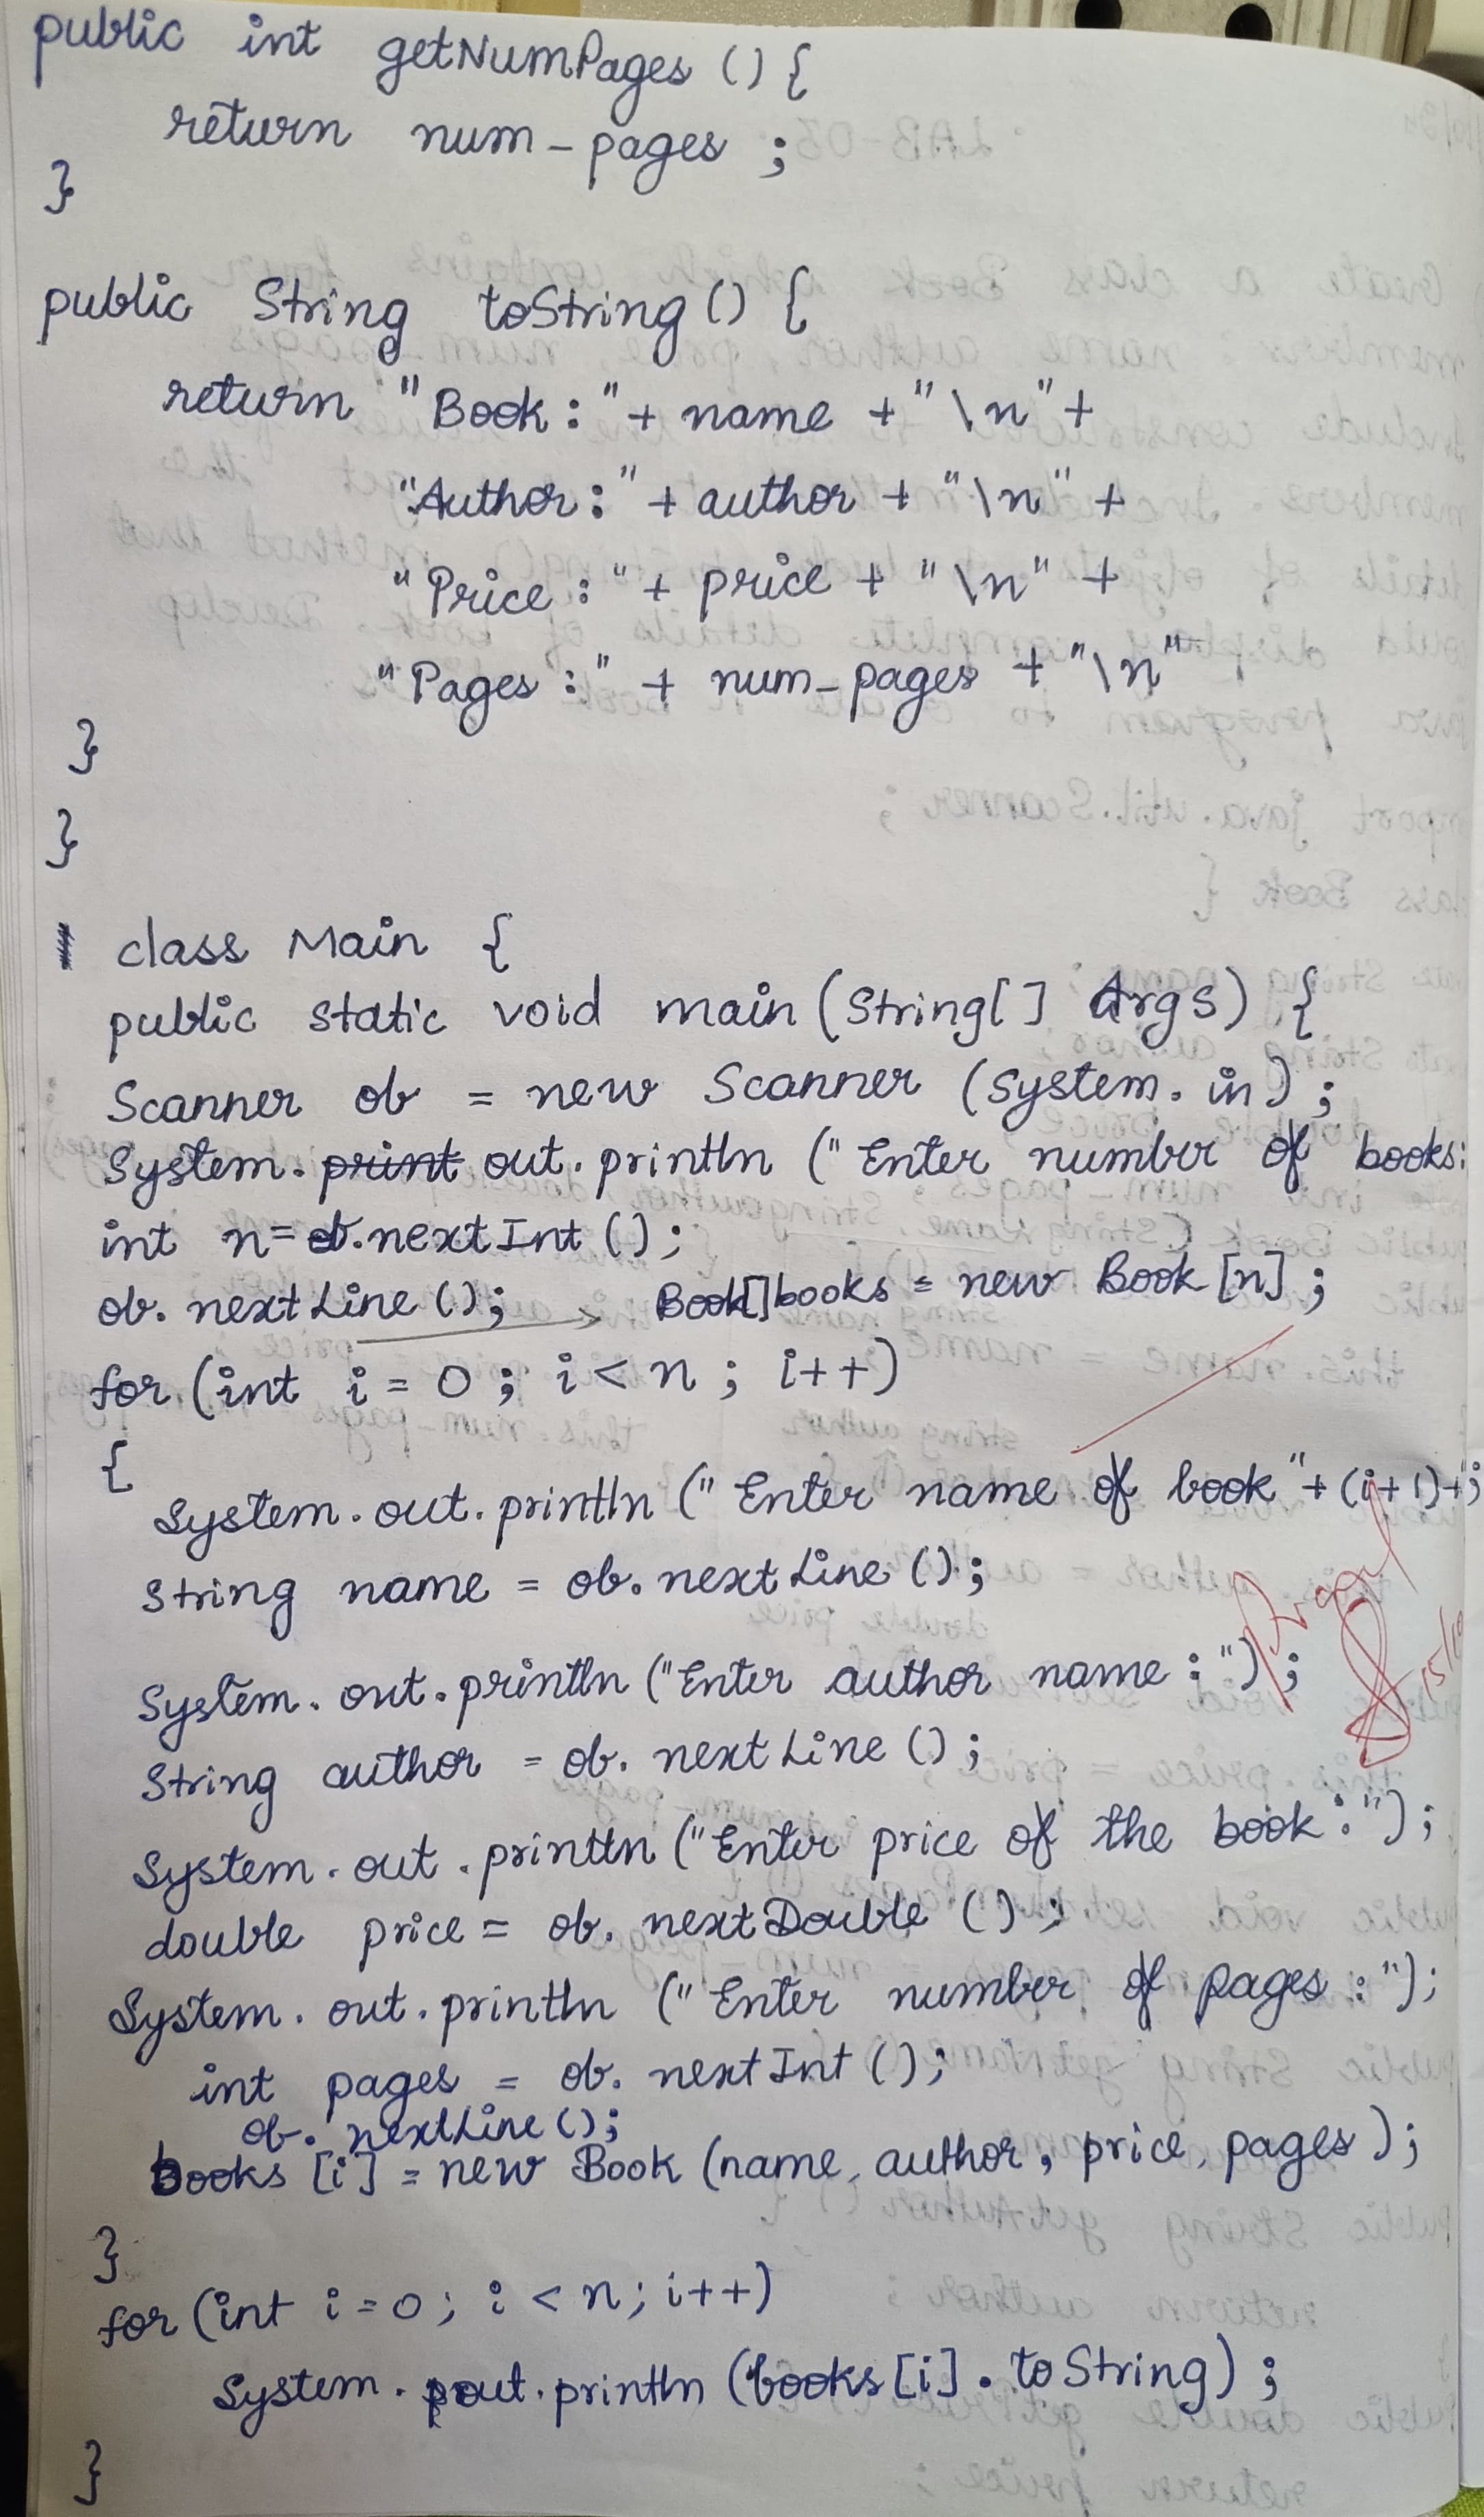 public int getNumPages () {
return num_pages ;
}
public String toString () {
return "Book : " + name + "\n" +
"Author : " + author + "\n" +
"Price : " + price + "\n" +
"Pages : " + num_pages + "\n"
}
}
class Main {
public static void main (String[] Args) {
Scanner ob = new Scanner (System. in) ;
System. print out. println (" Enter number of books:
int n = ob.nextInt () ;
ob. nextLine () ; → Book[] books = new Book [n] ;
for (int i = 0 ; i < n ; i++)
{
System. out. println (" Enter name of book " + (i+1)+";
String name = ob. nextLine () ;
System. out. println ("Enter author name : ") ;
String author = ob. nextLine () ;
System. out. println ("Enter price of the book : ") ;
double price = ob. nextDouble () ;
System. out. println (" Enter number of pages : ") ;
int pages = ob. nextInt () ;
ob. nextLine () ;
books [i] = new Book (name, author, price, pages ) ;
}
for (int i = 0 ; i < n ; i++)
System. out. println (books [i] . toString) ;
}